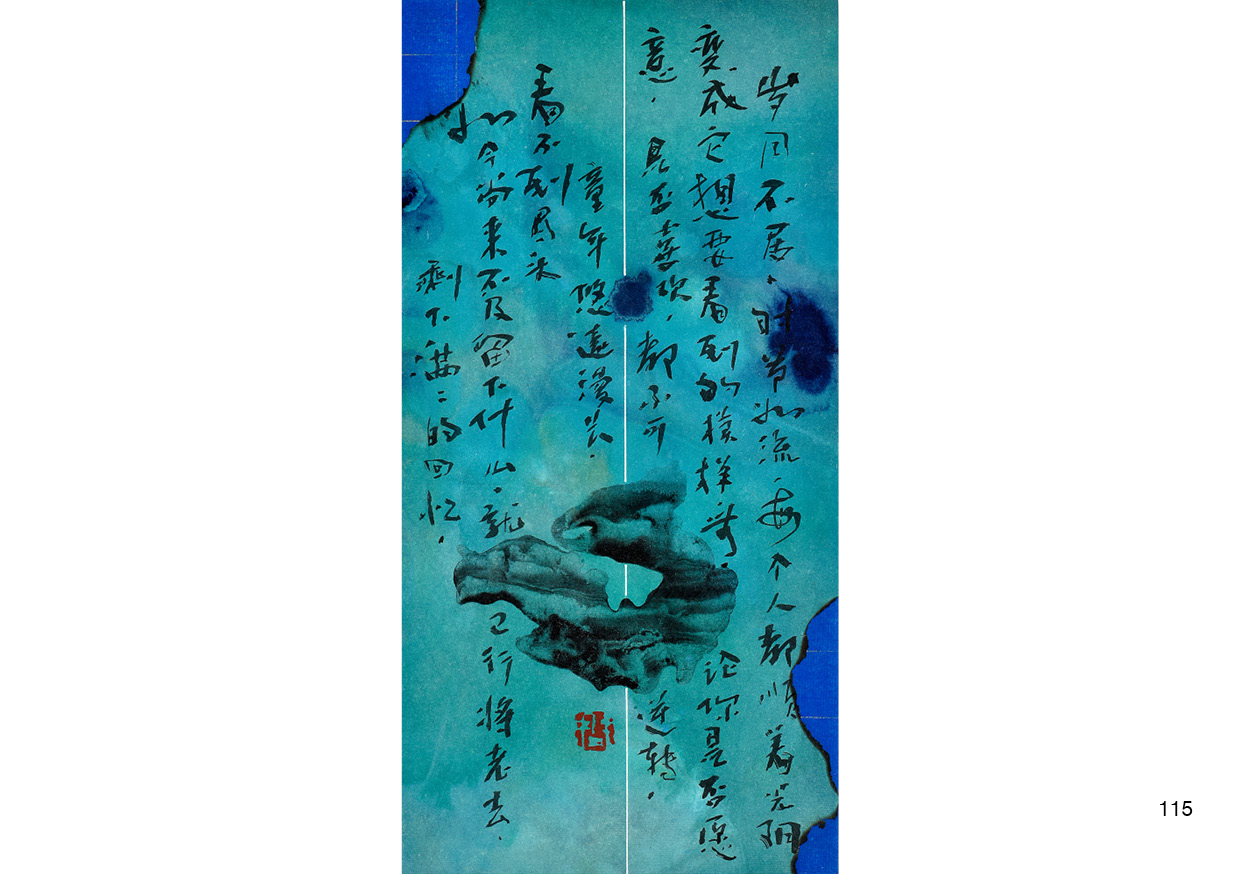 岁月不居，时节如流，每个人都顺着光阴
变成它想要看到的模样，论你是否愿
意，是否喜欢，都不可逆转。
童年悠远漫长，
看不到尽头
如今尚来不及留下什么，就已行将老去，
剩下满々的回忆。
115